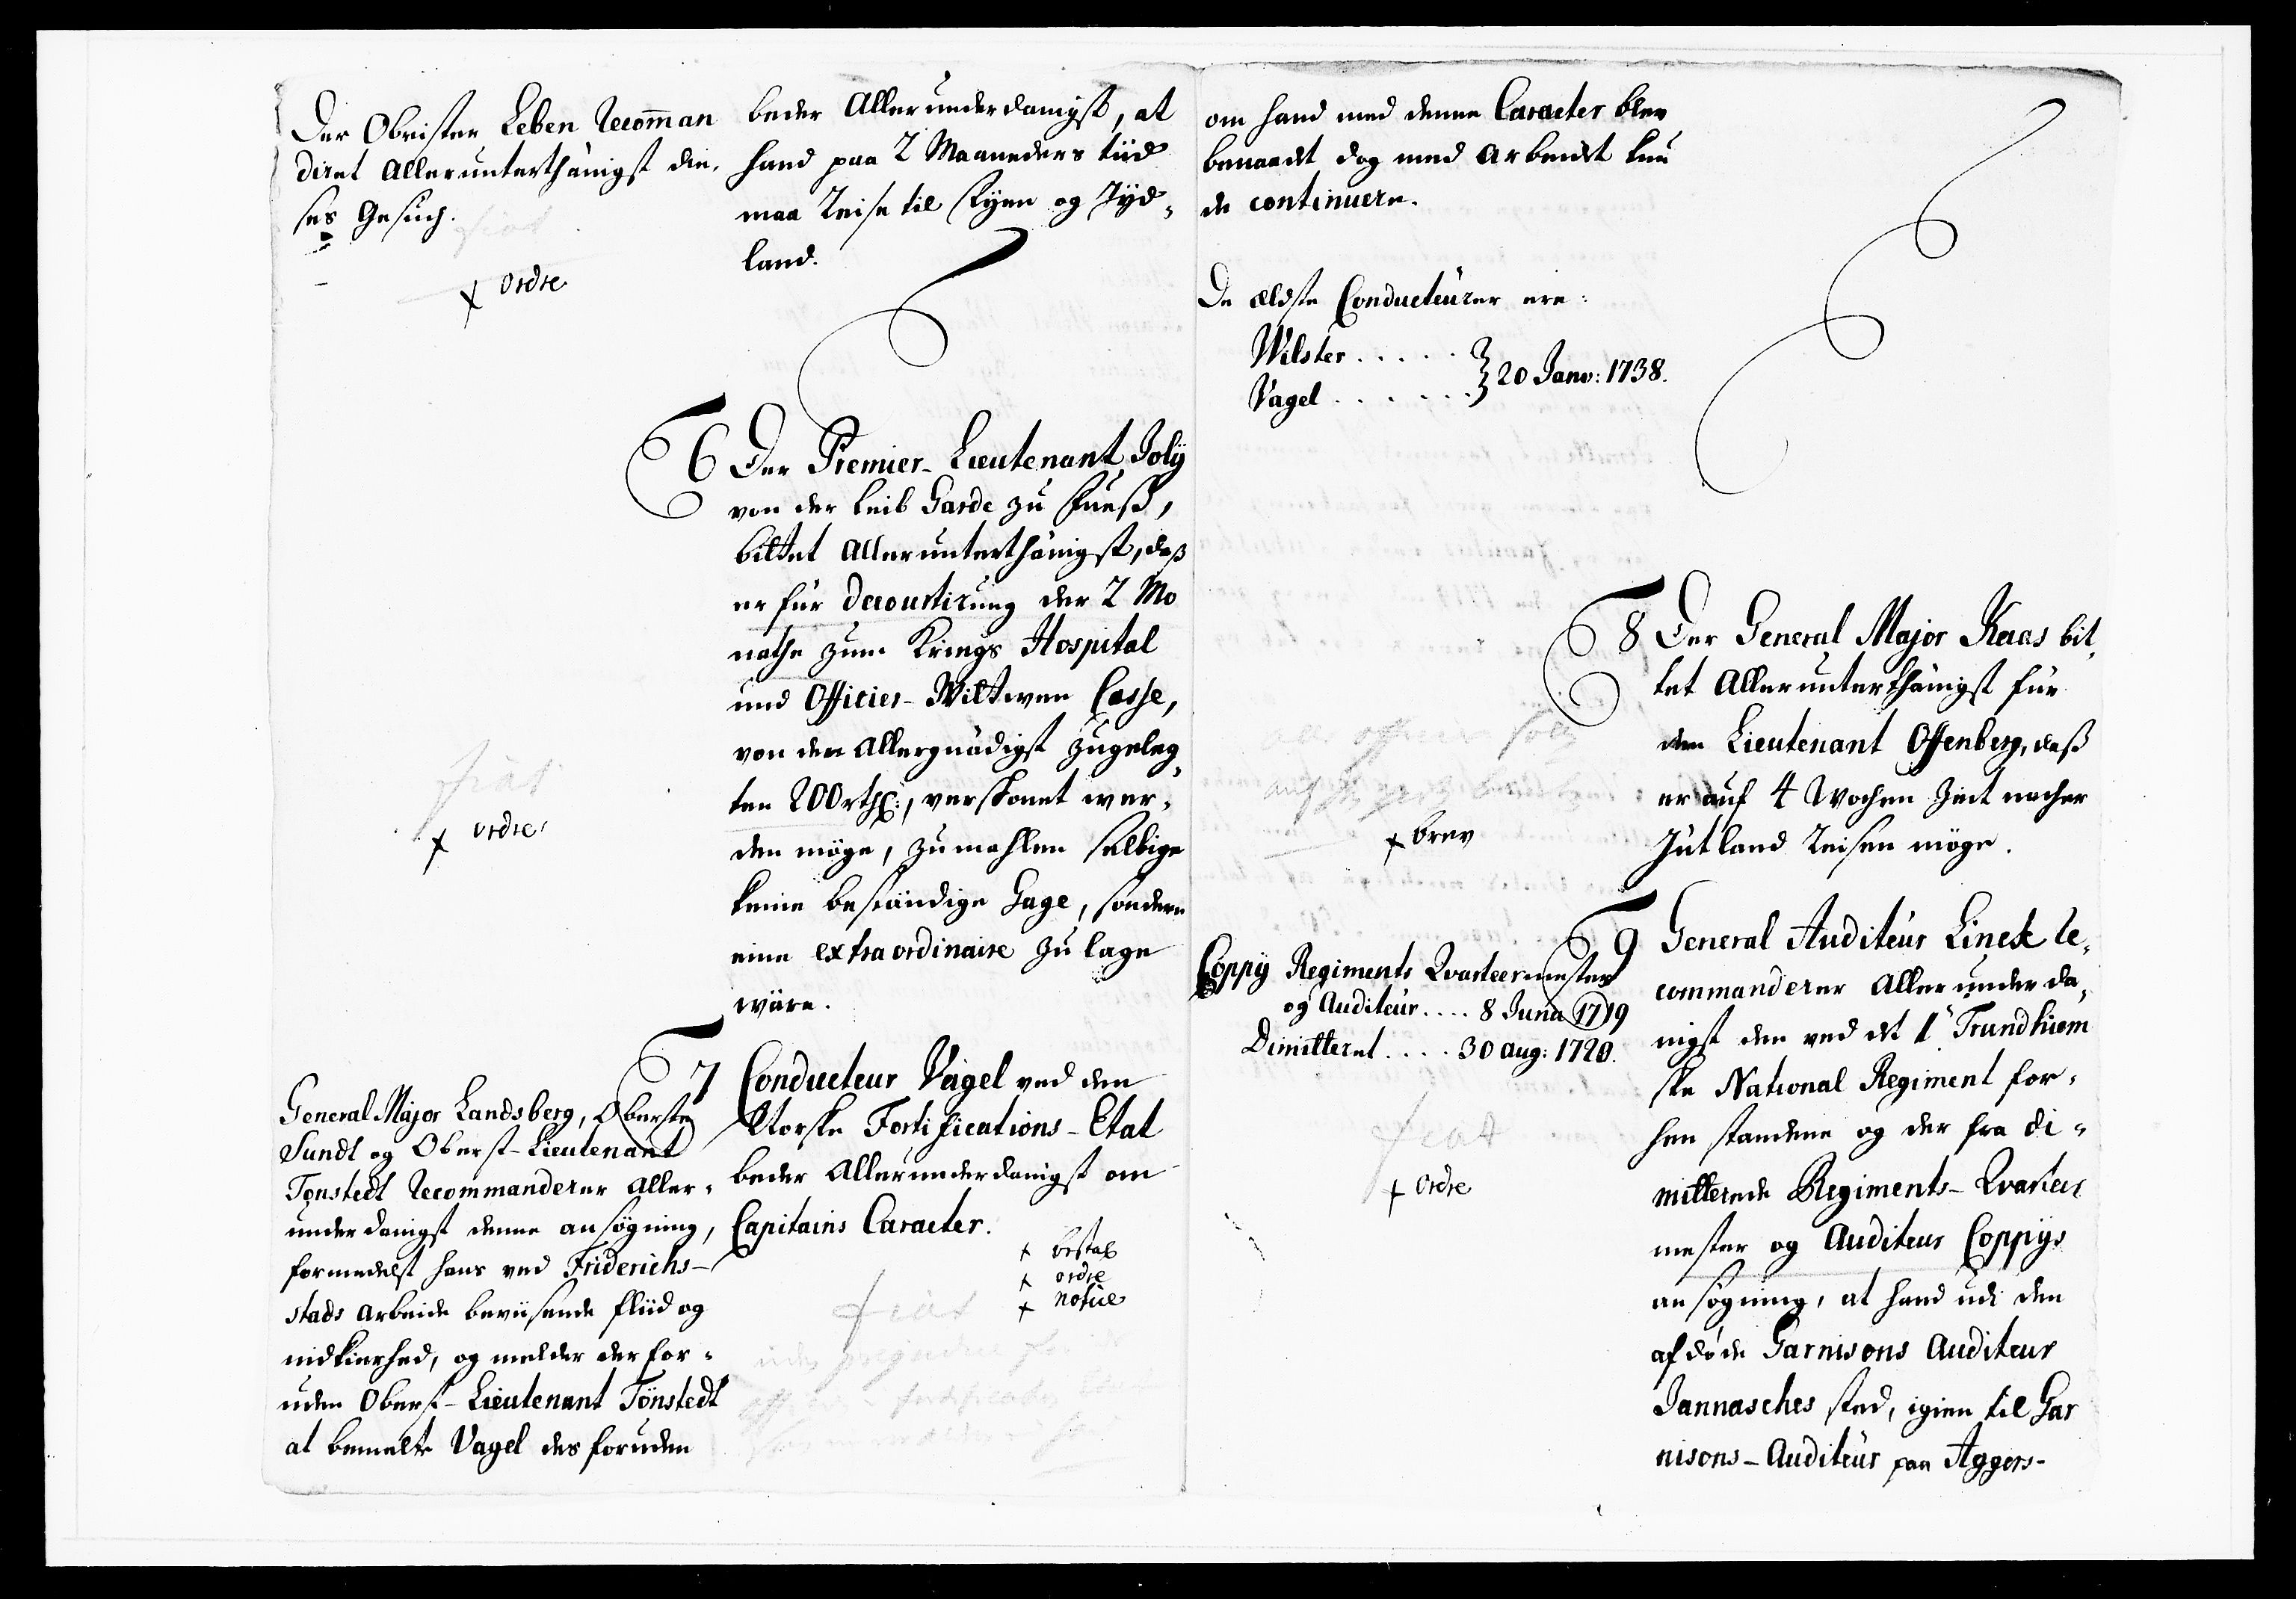 Der Obrister Leben Recom̄an
diret Allerunterthänigst die,
ses Gesuch.
fiat
x ordre
beder Allerunderdanigst, at
hand paa 2 Maaneders tiid
maa Reise til Fyen og Jyd,
land.
6 Der Premier-Lieutenant Joly
von der Leib Garde zu Fuess,
bittet Allerunterthänigst, daß
er für decourtirung der 2 Mo
nathe zum Kriegs Hospital
und Officier-Wittwen Casse,
von den Allergnädigst zugeleg,
ten 200 rthl:, verschonet wer,
den möge, zumahlen selbige
keine beständige Gage, sondern
eine extraordinaire zulage
wäre.
fiat
x ordre
7 Conducteur Vagel ved den
Norske Fortifications-Etat
beder Allerunderdanigst om
Capitains Caracter.
x bestal
x ordre
x notice
fiat
General Major Landsberg, Oberste
Sundt og Oberst-Lieutenant
Tønstedt Recommanderer Aller,
underdanigst denne ansøgning,
formedelst hans ved Friderichs-
stads arbeide beviisende fliid og
nidkierhed, og melder der for,
uden Oberst-Lieutenant Tönstedt
at bemelte Vagel des foruden
om hand med denne Caracter blev
benaadt dog med arbeidet kun
de continuere.
De ældste Conducteürer ere:
Wilster . . . . .
Vagel . . . . . . } 20 Janv: 1738.
8 Der General Major Kaas bit,
tet Allerunterthänigst für
den Lieutenant Offenberg, daß
er auf 4 Wochen Zeit nacher
Jütland Reisen möge.
x brev
9 General Auditeür Linck Re,
commanderer Allerunderda,
nigst den ved det 1te Trundhiem
ske National Regiment for,
hen standene og der fra di,
mitterede Regiments-Qvarteer
mester og Auditeur Coppys
ansøgning, at hand udi den
afdöde Garnisons Auditeur
Jannasches sted, igien til Gar
nisons-Auditeür paa Aggers-
Coppy Regiments Qvarteermester
og Auditeür .... 8 Juna 1719
Dimitteret .... 30 aug: 1720.
fiat
x ordre